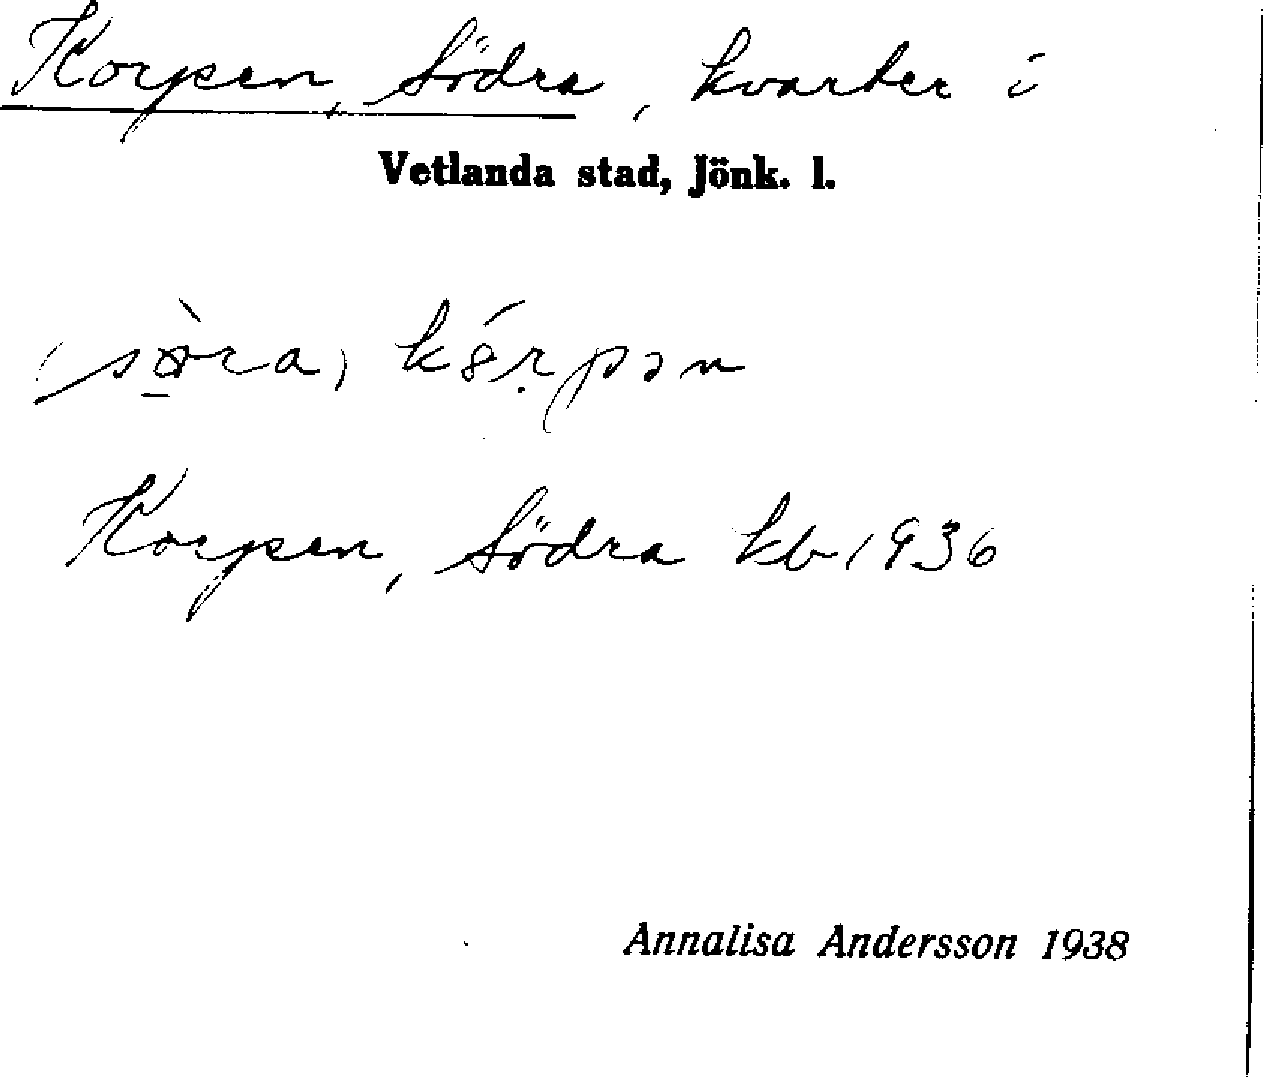 Korpen, Södra, kvarter i
Vetlanda stad, Jönk. l.
Korpen, Södra kb 1936
Annalisa Andersson 1938